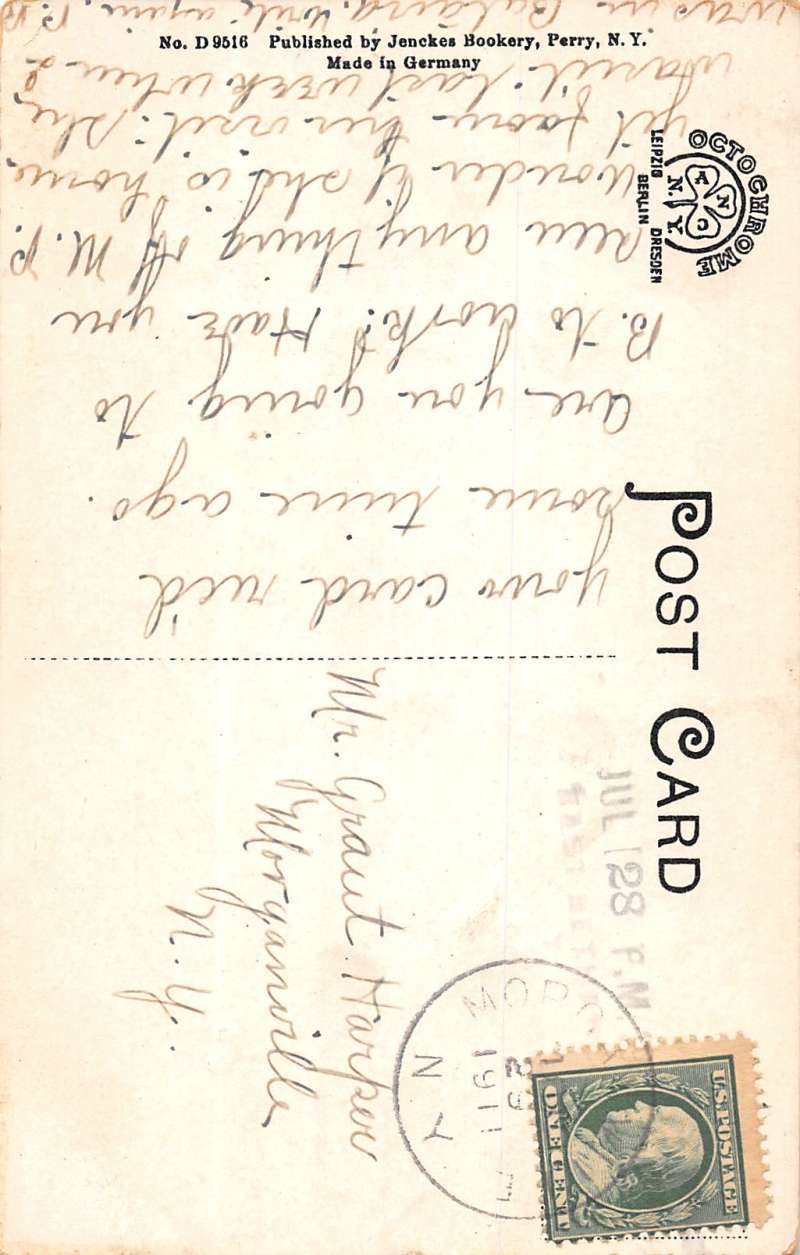 No. D 9516 Published by Jenckes Bookery, Perry, N. Y.
Made in Germany
OCTOCHROME
A N C
N. Y.
LEIPZIG BERLIN DRESDEN
POST CARD
your card rec'd
some time ago.
are you going to
B. to work? Have you
seen any thing of M. P.
Wonder if she is home
yet from her visit: she
wasn't last week when I
was in Batavia. Write again.
Mr. Grant Harper
Morganville
N. Y.
JUL 28 P.M
EAST
MORG
29
1911
N Y
U.S. POSTAGE
ONE CENT